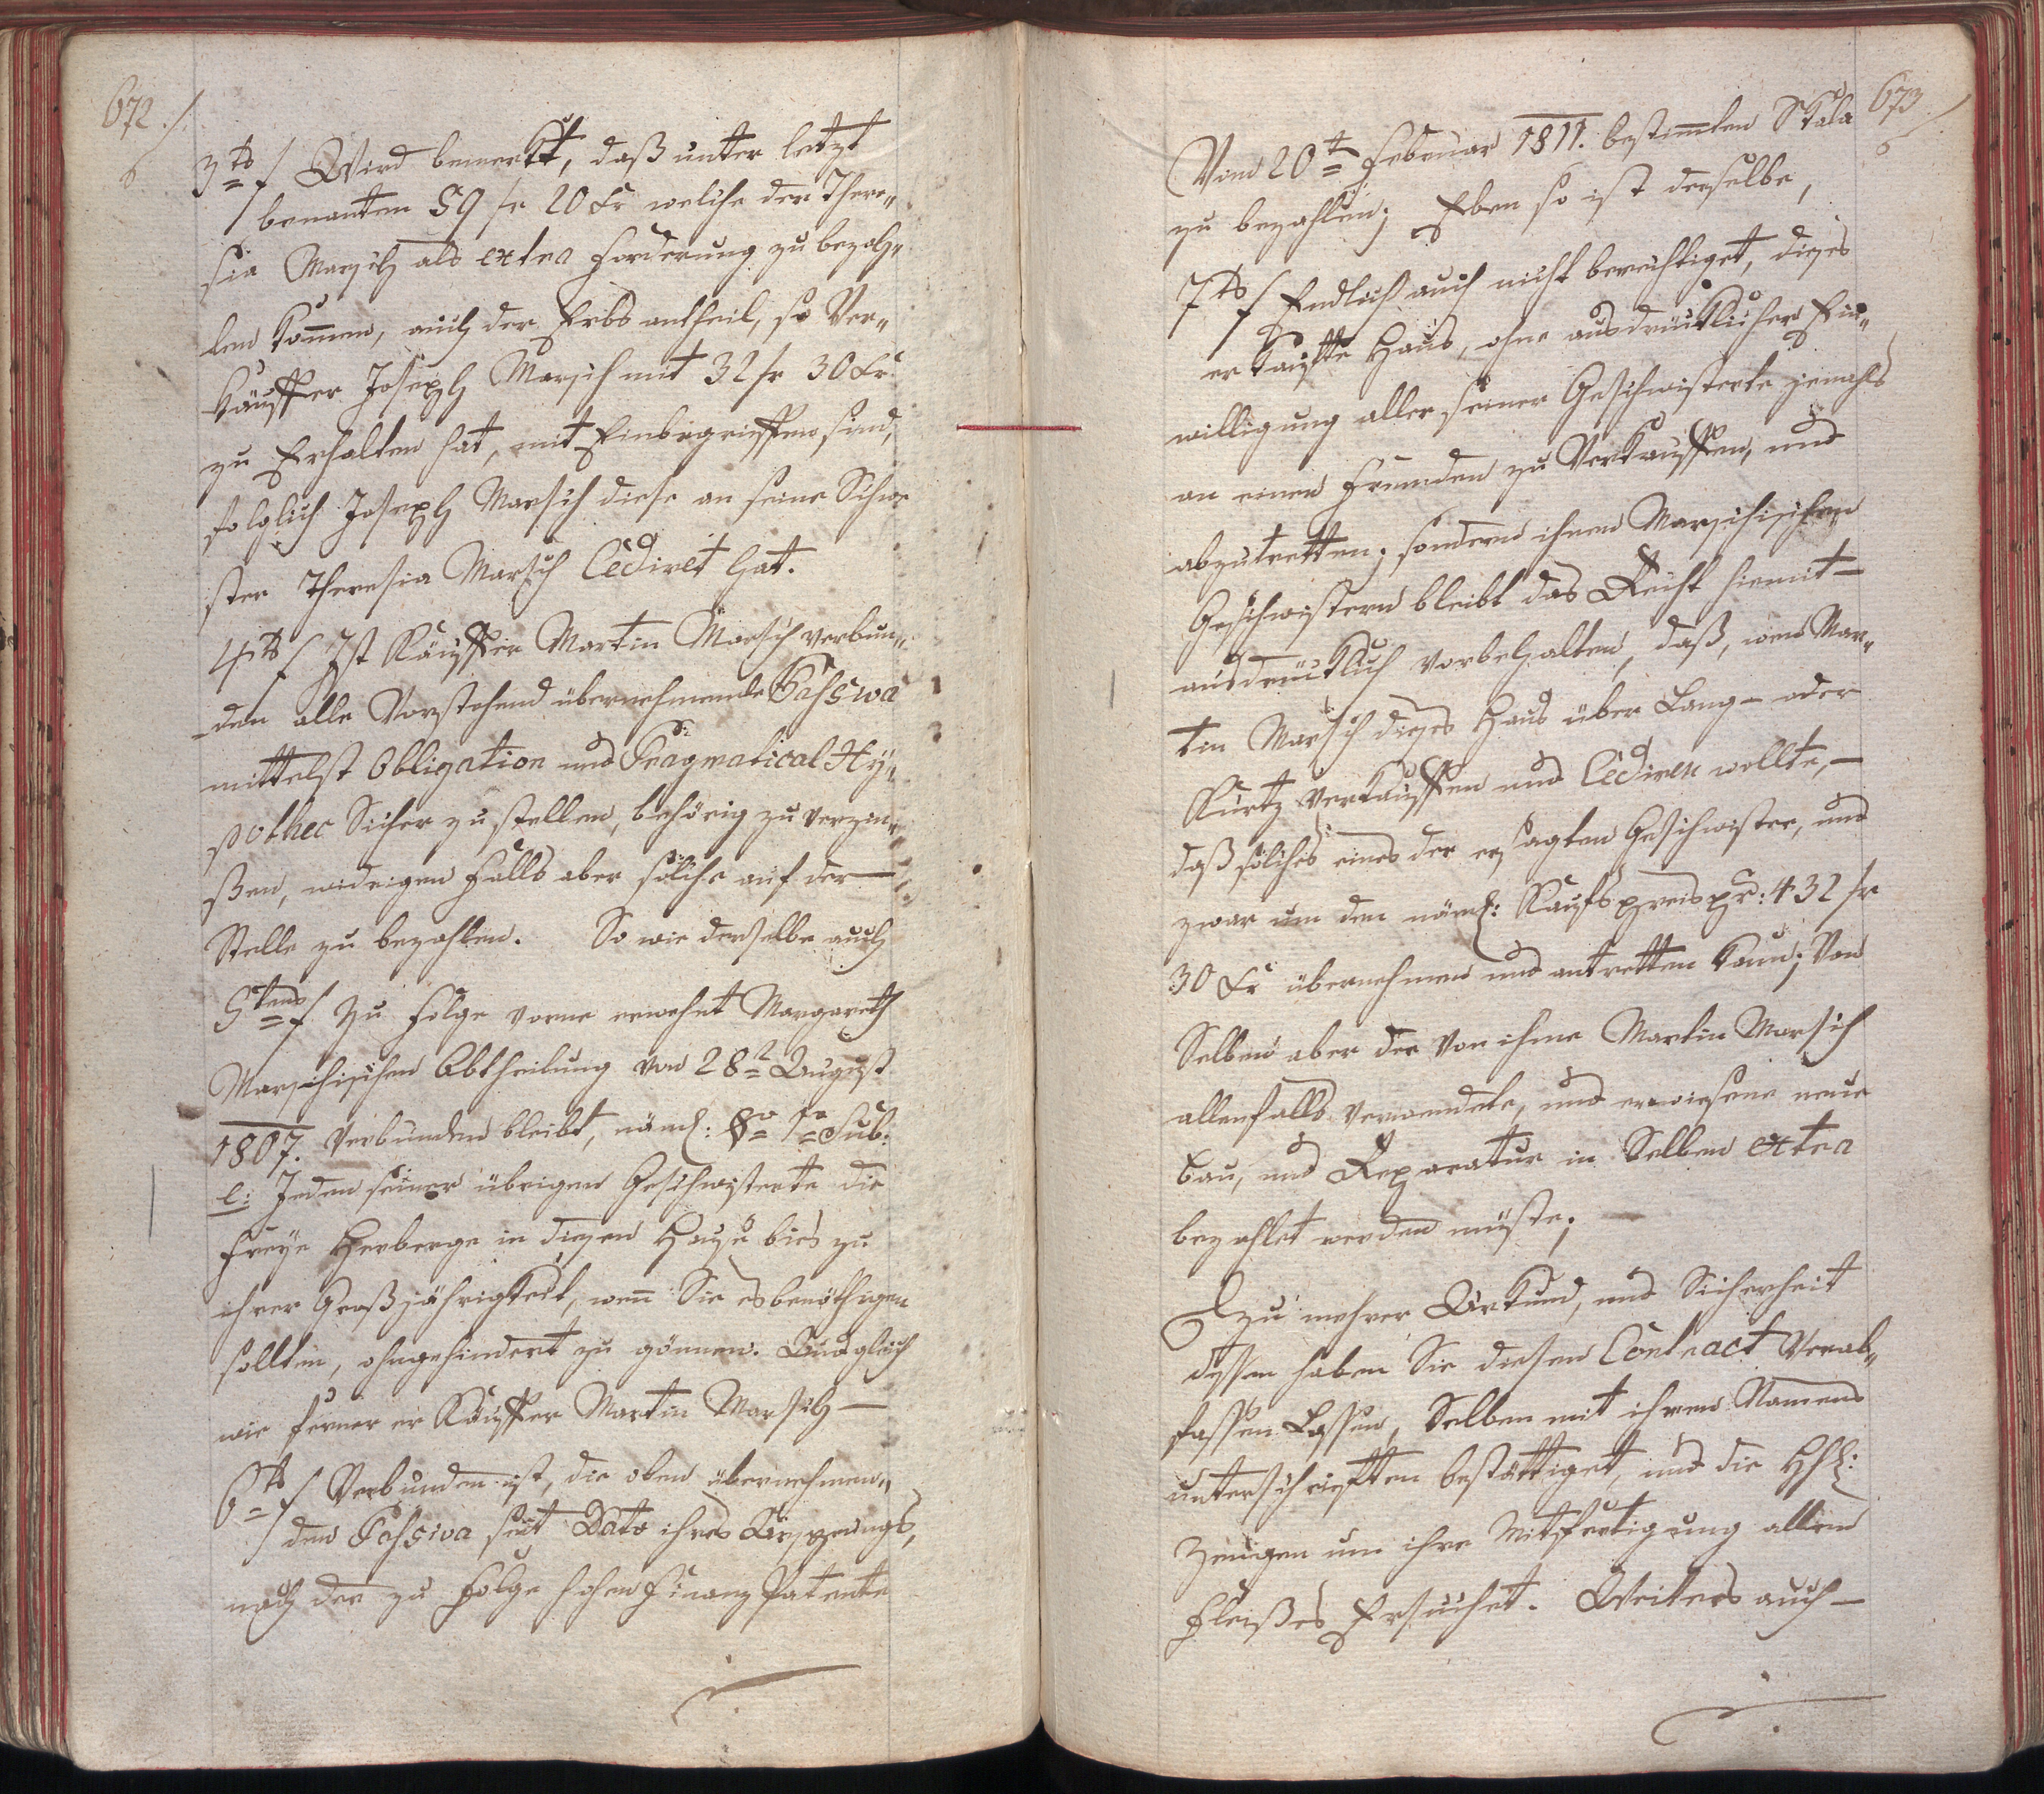 672./.
3tes/ Wird bemerkt, daß unter letzt
benanten 59 fr 20 Xr welche der There„
sia Marsch als extra Forderung zu bezah„
len kom̄en, auch der Erbs antheil, so Ver„
käuffer Joseph Marsch mit 32 fr 30 Xr
zu Erhalten hat, mit Einbegrieffen sind,
folglich Joseph Marsch diese an seine Schwe
ster Theresia Marsch Cediret hat.
4tes/ Ist Käuffer Martin Marsch verbun„
den alle Vorstehend übernehmende Passiva
mittelst Obligation und Pragmatical Hy„
pothec Sicher zu stellen, behörig zu verzin„
ßen, widrigen Falls aber solche auf der —
Stelle zu bezahlen. So wie derselbe auch
5tens/ Zu Folge vorne erwehnt Margareth
Marschischen Abtheilung von 28t August
1807. verbunden bleibt, näml: §o 1mo Sub:
e: Jeden seiner übrigen Geschwisterte die
freye Herberge in diesen Hause bies zu
ihrer Großjährigkeit, wen̄ Sie es benöthigen
sollten, ohngehindert zu gönnen. Und gleich
wie ferner er Käuffer Martin Marsch —
6tes/ Verbunden ist, die oben übernehmen„
den Passiva seit Dato ihres Ursprungs,
nach der zu Folge hohen Finanz Patente
673/
Vom 20t Februar 1811. bestim̄ten Skala
zu bezahlen; Eben so ist derselbe,
7tes/ Endlich auch nicht berechtiget, dieses
erkaufte Haus, ohne ausdrücklicher Ein„
willigung aller seiner Geschwisterte jemahls
an einen Fremden zu Verkauffen, und
abzutretten; sondern ihnen Marschischen
Geschwistern bleibt das Recht hiemit —
ausdrücklich vorbehalten, daß, wen Mar„
tin Marsch dieses Haus über Lang- oder
Kurtz Verkauffen und Cediren wollte, —
daß solches eines der ersagten Geschwister, und
zwar um den näml: Kaufspreis pr: 432 fr
30 Xr übernehmen und antretten kann; Von
Selben aber der von ihme Martin Marsch
allenfalls verwendete, und erwiesene neue
Bau, und Reparatur in Selben extra
bezahlet werden müste;
Zu mehrer Urkund, und Sicherheit
dessen haben Sie diesen Contract Verab„
fassen Lassen, Selben mit ihren Namens
unterschrieften bestättiget, und die HH:
Zeugen um ihre Mitfertigung allen
Fleißes Ersuchet. Weiters auch —